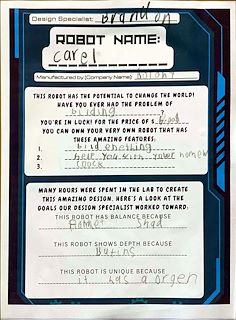 Design Specialist: Brandon
ROBOT NAME:
Carel
Manufactured by (Company Name)
THIS ROBOT HAS THE POTENTIAL TO CHANGE THE WORLD!
HAVE YOU EVER HAD THE PROBLEM OF
bilding
YOU'RE IN LUCK! FOR THE PRICE OF $
YOU CAN OWN YOUR VERY OWN ROBOT THAT HAS
THESE AMAZING FEATURES:
1. bild enething
2. help you with your homew
3. coock
MANY HOURS WERE SPENT IN THE LAB TO CREATE
THIS AMAZING DESIGN. HERE'S A LOOK AT THE
GOALS OUR DESIGN SPECIALIST WORKED TOWARD:
THIS ROBOT HAS BALANCE BECAUSE
THIS ROBOT SHOWS DEPTH BECAUSE
Butins
THIS ROBOT IS UNIQUE BECAUSE
it has a orgen